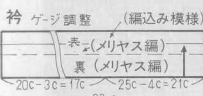 衿 ゲージ調整 (編込み模様)
表 (メリヤス編)
裏 (メリヤス編)
20c-3c=17c 25c-4c=21c